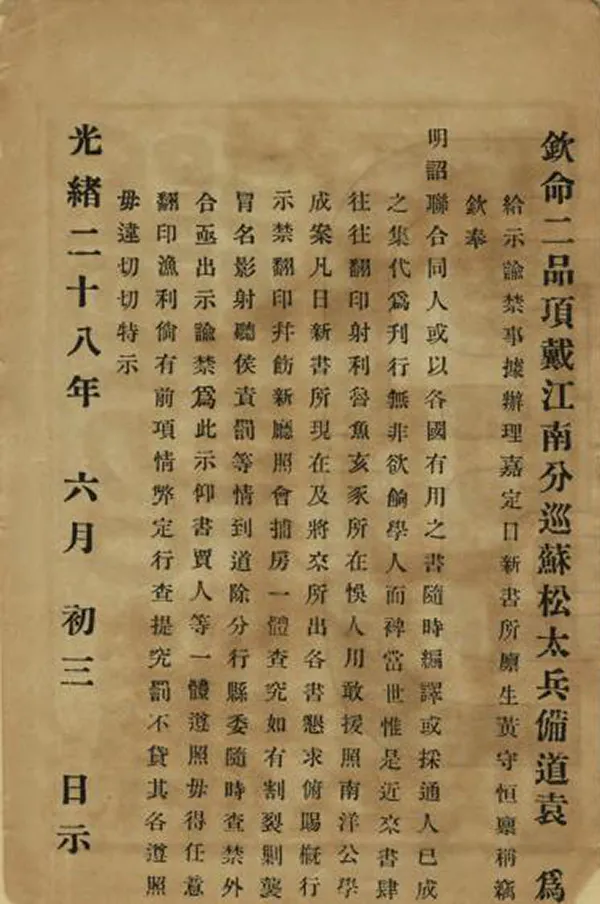 欽命二品項戴江南分巡蘇松太兵備道袁 爲
給示諭禁事據辦理嘉定日新書所廪生黃守恒禀稱竊
欽奉
明詔聯合同人或以各國有用之書隨時編譯或採通人已成
之集代爲刊行無非欲餉學人而裨當世惟是近來書肆
往往翻印射利魯魚亥豕所在悞人用敢援照南洋公學
成案凡日新書所現在及將來所出各書懇求俯賜檄行
示禁翻印并飭新廳照會捕房一體查究如有割裂剿襲
冒名影射聽侯責罰等情到道除分行縣委隨時查禁外
合亟出示諭禁爲此示仰書賈人等一體遵照毋得任意
翻印漁利倘有前項情弊定行查提究罰不貸其各遵照
毋違切切特示
光緒二十八年 六月 初三 日示